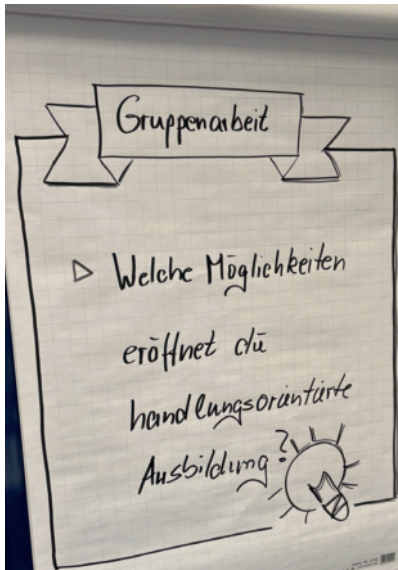 Gruppenarbeit
▷ Welche Möglichkeiten
eröffnet die
handlungsorientierte
Ausbildung?